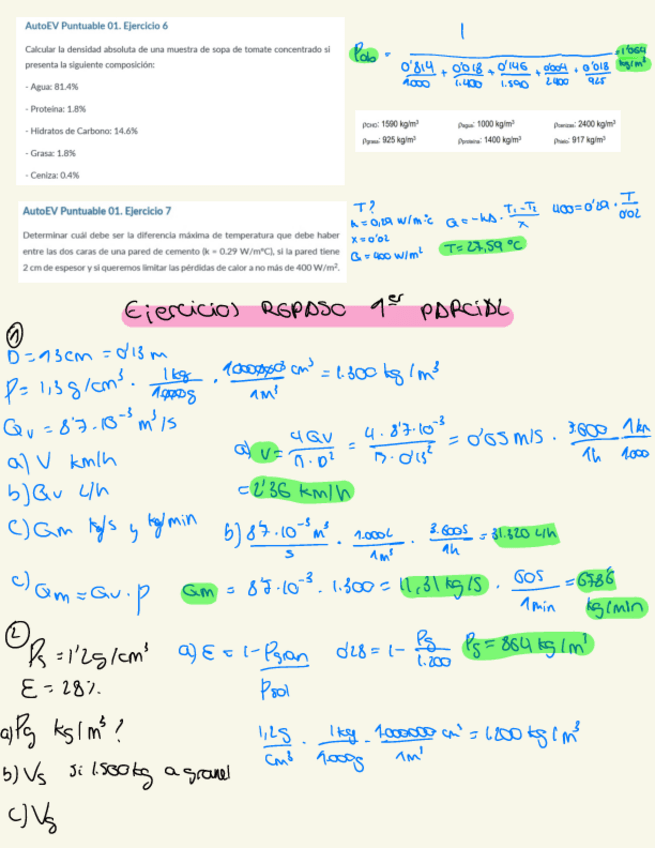 AutoEV Puntuable 01. Ejercicio 6
Calcular la densidad absoluta de una muestra de sopa de tomate concentrado si
presenta la siguiente composición:
- Agua: 81.4%
- Proteína: 1.8%
- Hidratos de Carbono: 14.6%
- Grasa: 1.8%
- Ceniza: 0.4%
ρab = 1 / (0'814/1000 + 0'018/1.400 + 0'146/1.590 + 0'004/2400 + 0'018/925) = 1'064 kg/m³
ρCHO: 1590 kg/m³ ρagua: 1000 kg/m³ ρcenizas: 2400 kg/m³
ρgrasa: 925 kg/m³ ρproteína: 1400 kg/m³ ρhielo: 917 kg/m³
AutoEV Puntuable 01. Ejercicio 7
Determinar cuál debe ser la diferencia máxima de temperatura que debe haber
entre las dos caras de una pared de cemento (k = 0.29 W/mºC), si la pared tiene
2 cm de espesor y si queremos limitar las pérdidas de calor a no más de 400 W/m².
T?
k = 0,29 W/m·ºC Q = -kA · T1-T2/x 400 = 0'29 · T/0'02
x = 0'02
Q = 400 W/m² T = 27,59 ºC
Ejercicios REPASO 1er PARCIAL
①
D = 13 cm = 0'13 m
ρ = 1,3 g/cm³ · 1kg/1000g · 1000000 cm³/1m³ = 1.300 kg/m³
Qv = 8'7·10⁻³ m³/s
a) V km/h
b) Qv L/h
c) Qm kg/s y kg/min
a) v = 4Qv/π·D² = 4·8'7·10⁻³/π·0'13² = 0'65 m/s · 3.600/1h · 1km/1.000
= 2'36 km/h
b) 8'7·10⁻³ m³/s · 1.000L/1m³ · 3.600s/1h = 31.320 L/h
c) Qm = Qv·ρ Qm = 8'7·10⁻³ · 1.300 = 11,31 kg/s · 60s/1min = 678'6 kg/min
②
ρs = 1'2g/cm³
E = 28%
a) E = 1 - ρgran/ρsol 0'28 = 1 - ρg/1.200 ρg = 864 kg/m³
a) ρg kg/m³?
1,2g/cm³ · 1kg/1000g · 1000000 cm³/1m³ = 1200 kg/m³
b) Vs si 1.500kg a granel
c) Vg